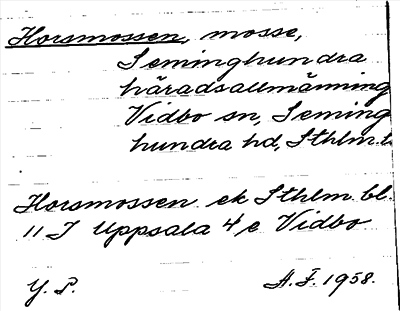 Horsmossen, mosse,
Seminghundra
häradsallmänning
Vidbo sn, Seming
hundra hd, Sthlm.l.
Horsmossen. ek Sthlm bl.
11 J Uppsala 4 e Vidbo
Y. P.
A. F. 1958.